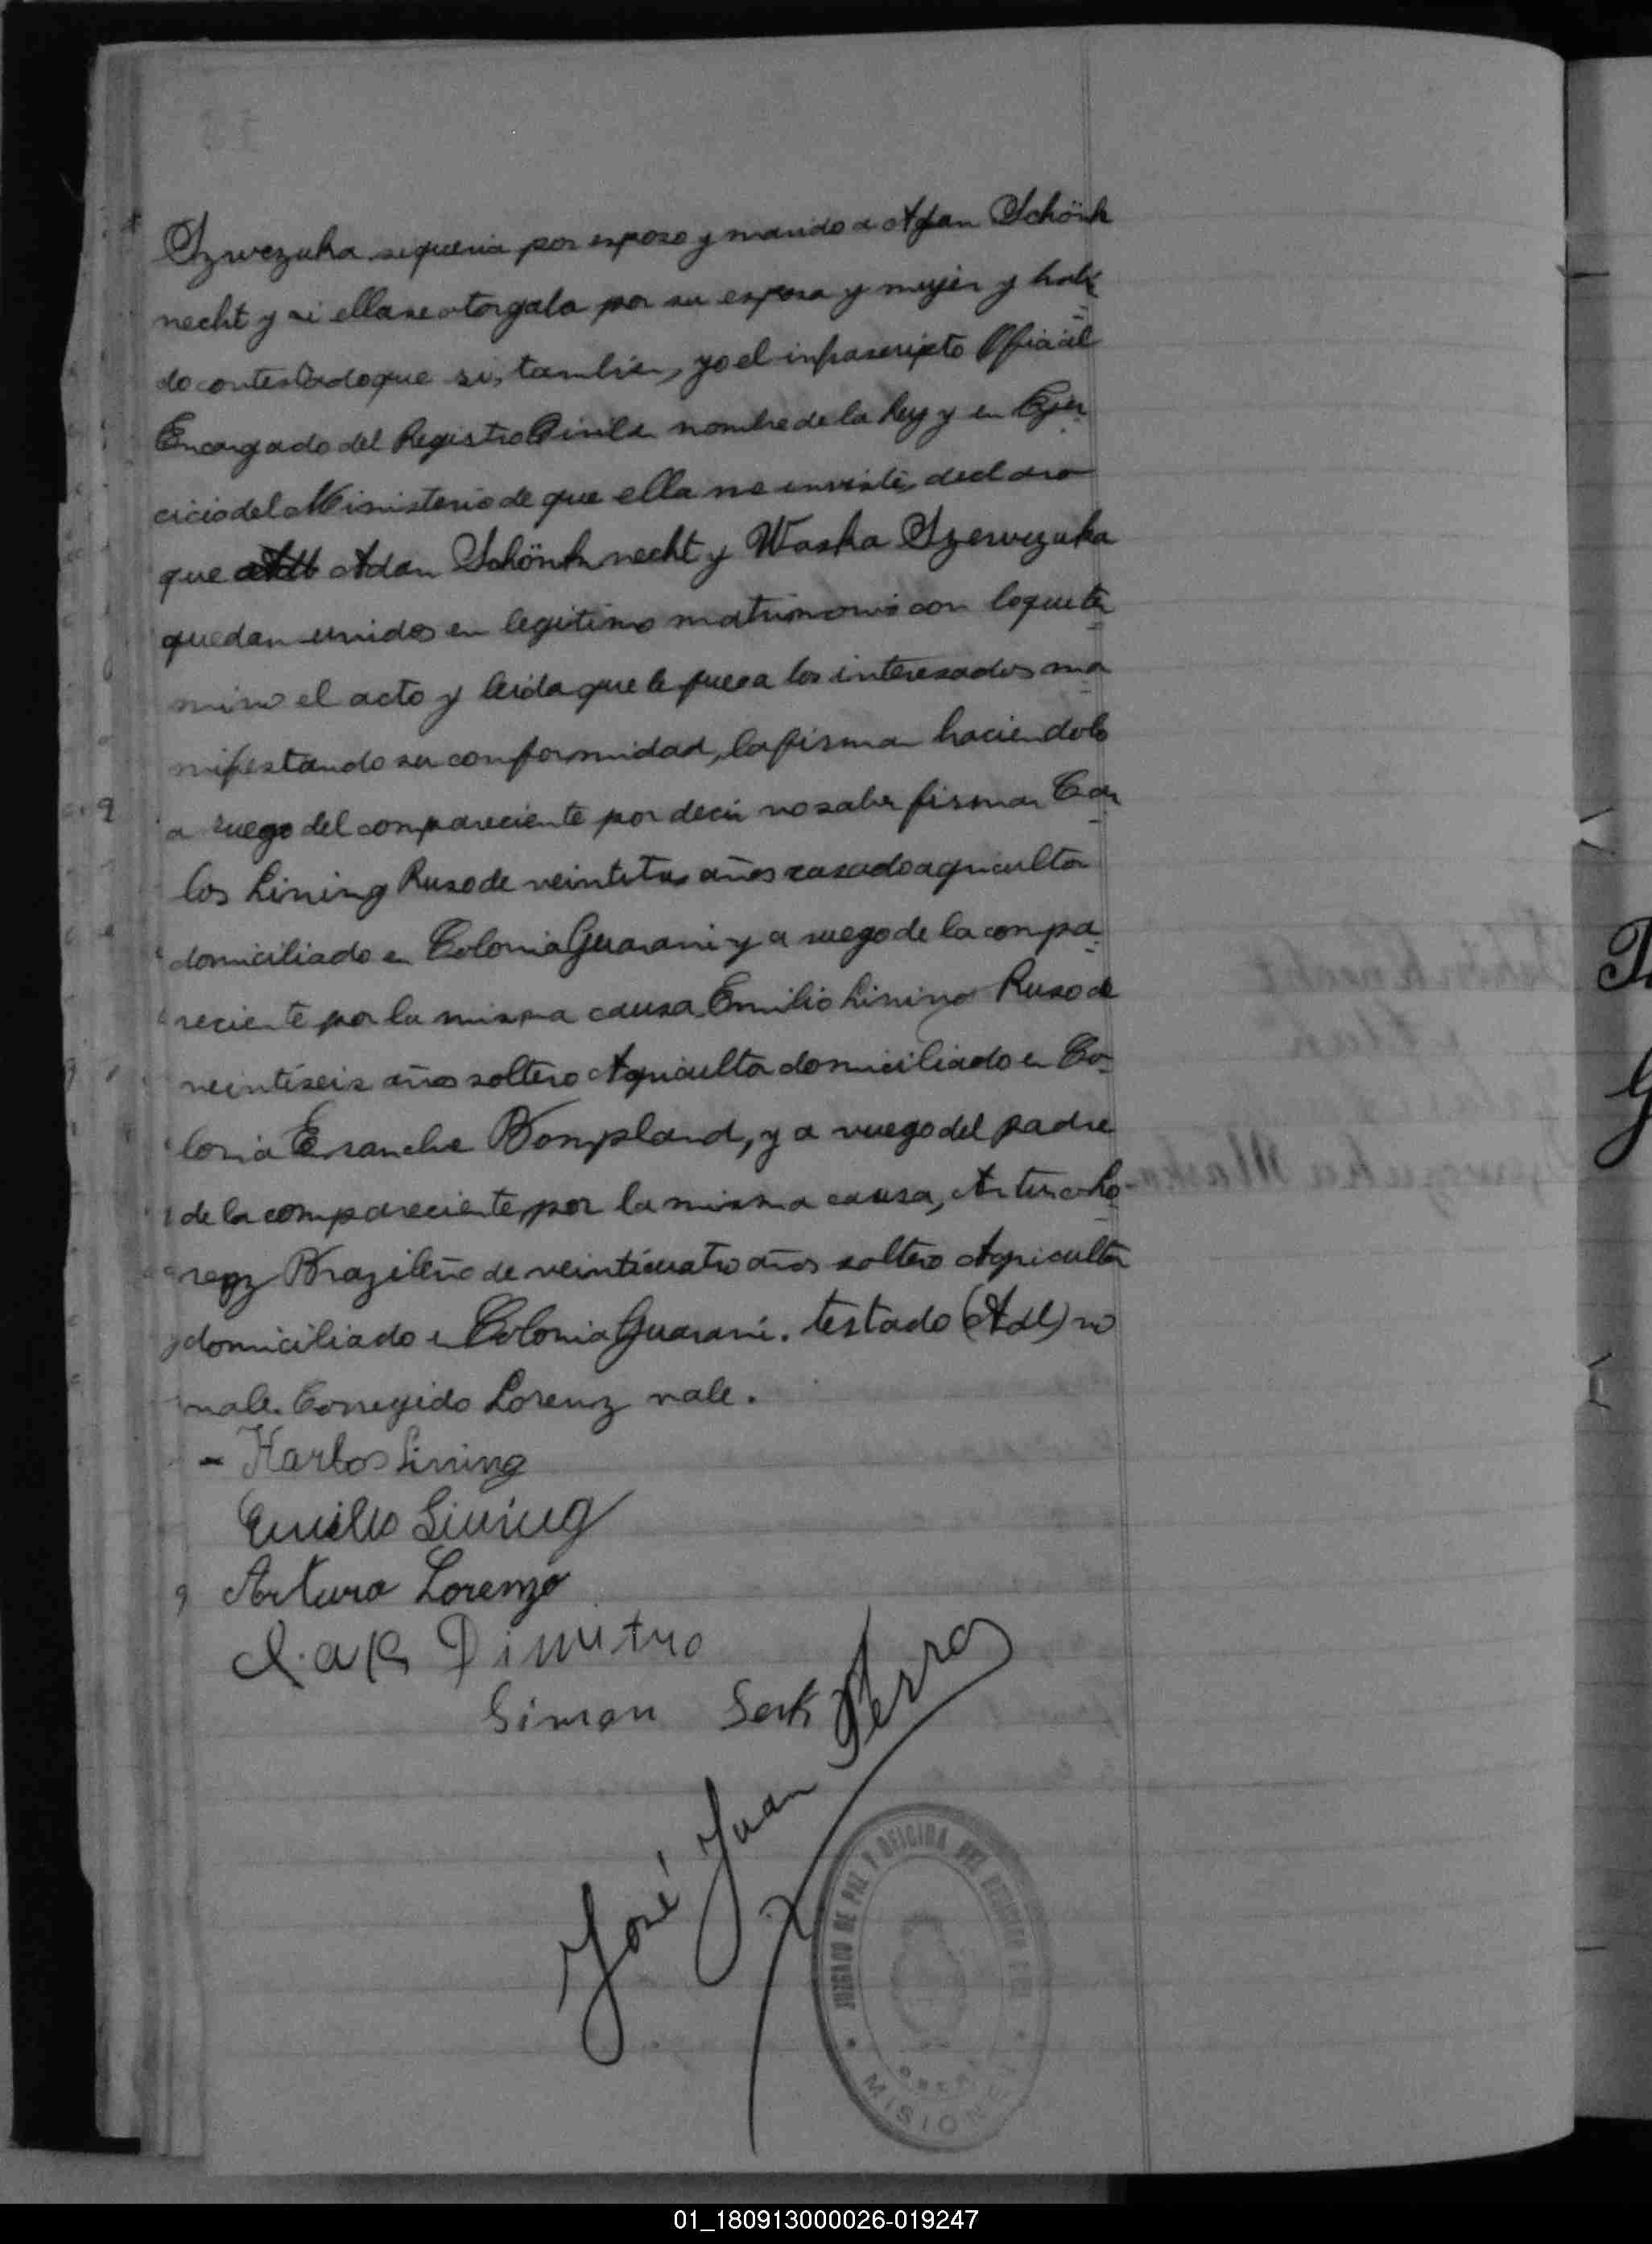 Szwezuka si queria por esposo y marido a Adan Schönk
necht y si ella se otorgaba por su esposa y mujer y habi
do contestado que si, tambien, yo el infrascripto Oficial
Encargado del Registro Civil en nombre de la Ley y en Ejer
cicio del Ministerio de que ella me enviste, declaro
que Adl Adan Schönknecht y Waska Szewezuka
quedan unidos en legitimo matrimonio con lo que ter
mino el acto y leida que le fue a los interesados ma
nifestando su conformidad, la firman haciendolo
a ruego del compareciente por decir no saber firmar Car
los Lining Ruso de veintitres años casado agricultor
domiciliado en Colonia Guarani y a ruego de la compa
reciente por la misma causa Emilio Lining Ruso de
veintiseis años soltero Agricultor domiciliado en Co
lonia Ensanche Bompland, y a ruego del padre
de la compareciente, por la misma causa, Arturo Lo-
renz Brazileño de veinticuatro años soltero Agricultor
domiciliado en Colonia Guarani. testado (Adl) no
vale. Corregido Lorenz vale.
- Karlos Lining
Emilio Lining
Arturo Lorenzo
Dimitro
Simon
José Juan Ferra
JUZGADO DE PAZ Y OFICINA DEL REGISTRO CIVIL
OBERA
MISIONES
Schönknecht
01_180913000026-019247